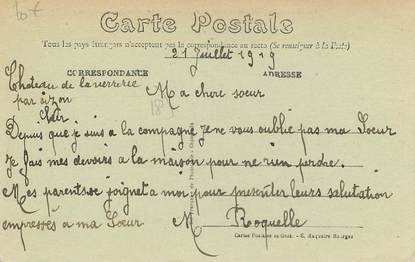 Carte Postale
Tous les pays étrangers n'acceptent pas la correspondance au recto (Se renseigner à la Poste)
21 Juillet 1919
CORRESPONDANCE
ADRESSE
Chateau de la verrerie
par oizon
Cher
Ma chere soeur
Depuis que je suis a la compagne je ne vous oublié pas ma Soeur
je fais mes devoirs a la maison pour ne rien perdre.
Mes parents se joignet a moi pour presenter leurs salutation
empressés a ma Soeur
M Roquelle
Bourges